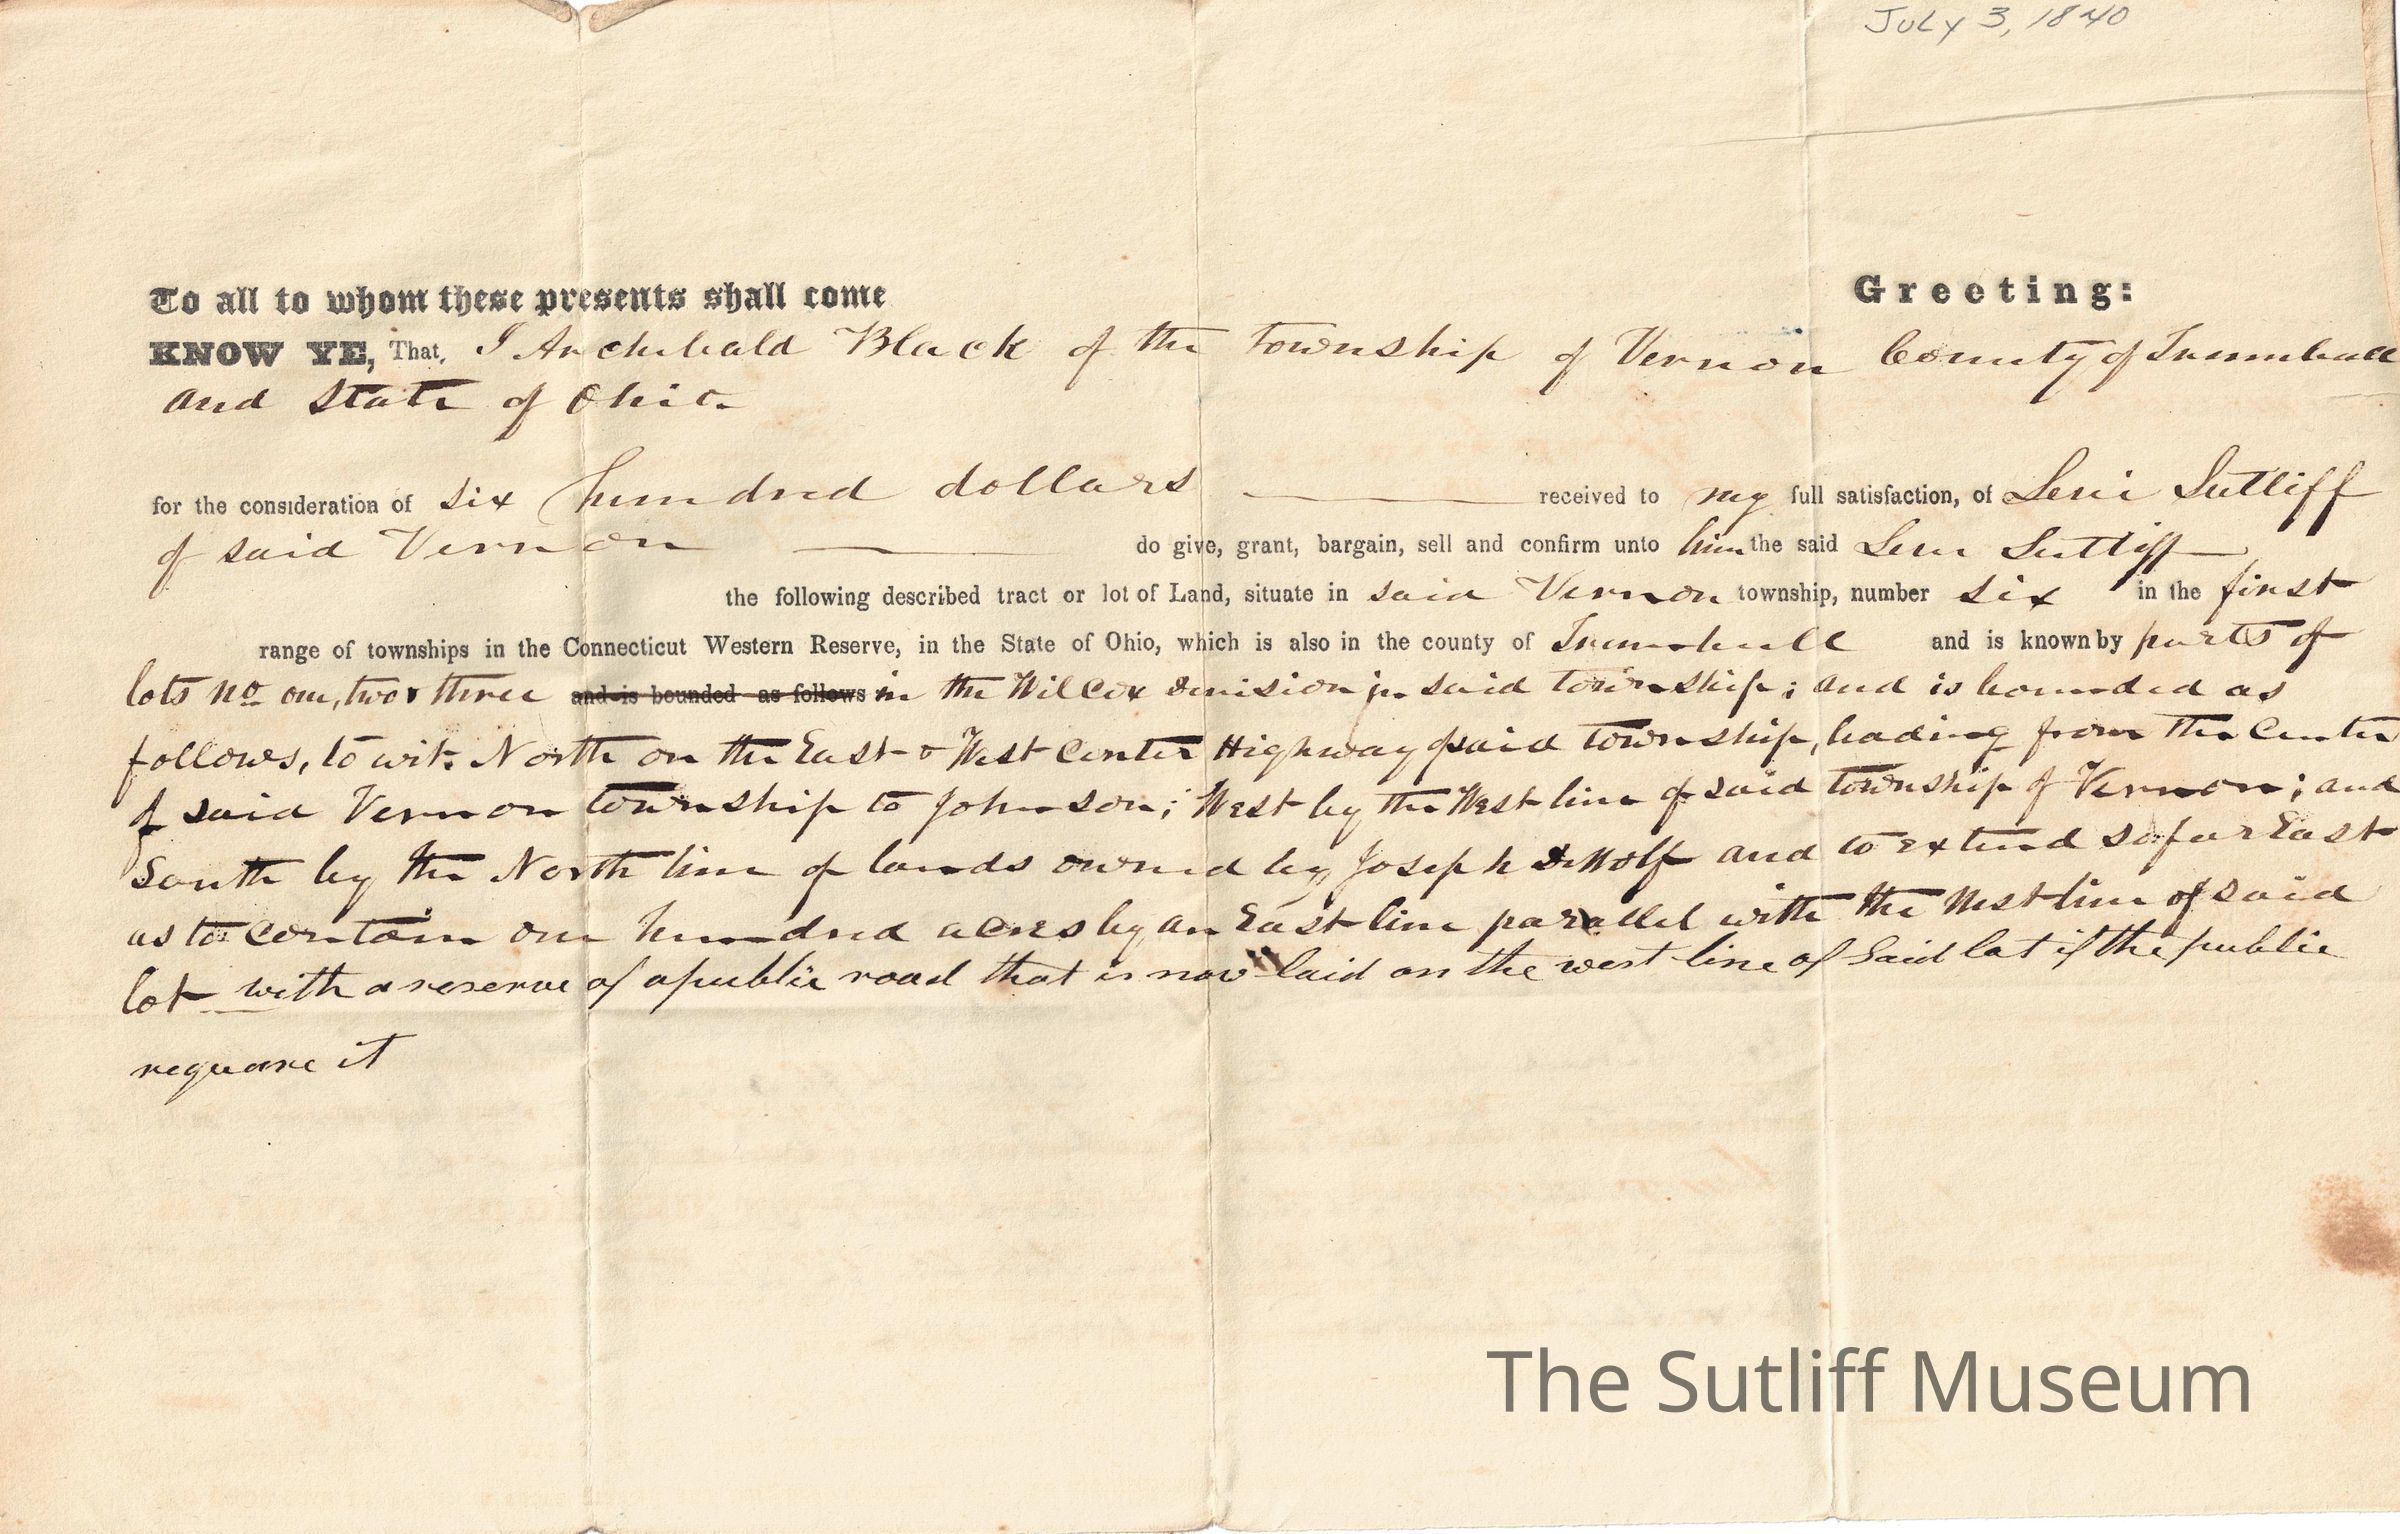 July 3, 1840
To all to whom these presents shall come Greeting:
KNOW YE, That, I Archibald Black of the Township of Vernon County of Trumbull
and State of Ohio.
for the consideration of six hundred dollars received to my full satisfaction, of Levi Sutliff
of said Vernon do give, grant, bargain, sell and confirm unto him the said Levi Sutliff
the following described tract or lot of Land, situate in said Vernon township, number six in the first
range of townships in the Connecticut Western Reserve, in the State of Ohio, which is also in the county of Trumbull and is known by parts of
lots No one, two & three and is bounded as follows in the Wilcox Division in said township; and is bounded as
follows, to wit. North on the East & West Center Highway of said township, leading from the Center
of said Vernon township to Johnson; West by the West line of said township of Vernon; and
South by the North line of lands owned by Joseph DeWolf and to extend so far East
as to contain one hundred acres by an East line parallel with the West line of said
lot with a reserve of a public road that is now laid on the west line of Said lot if the public
requare it
The Sutliff Museum